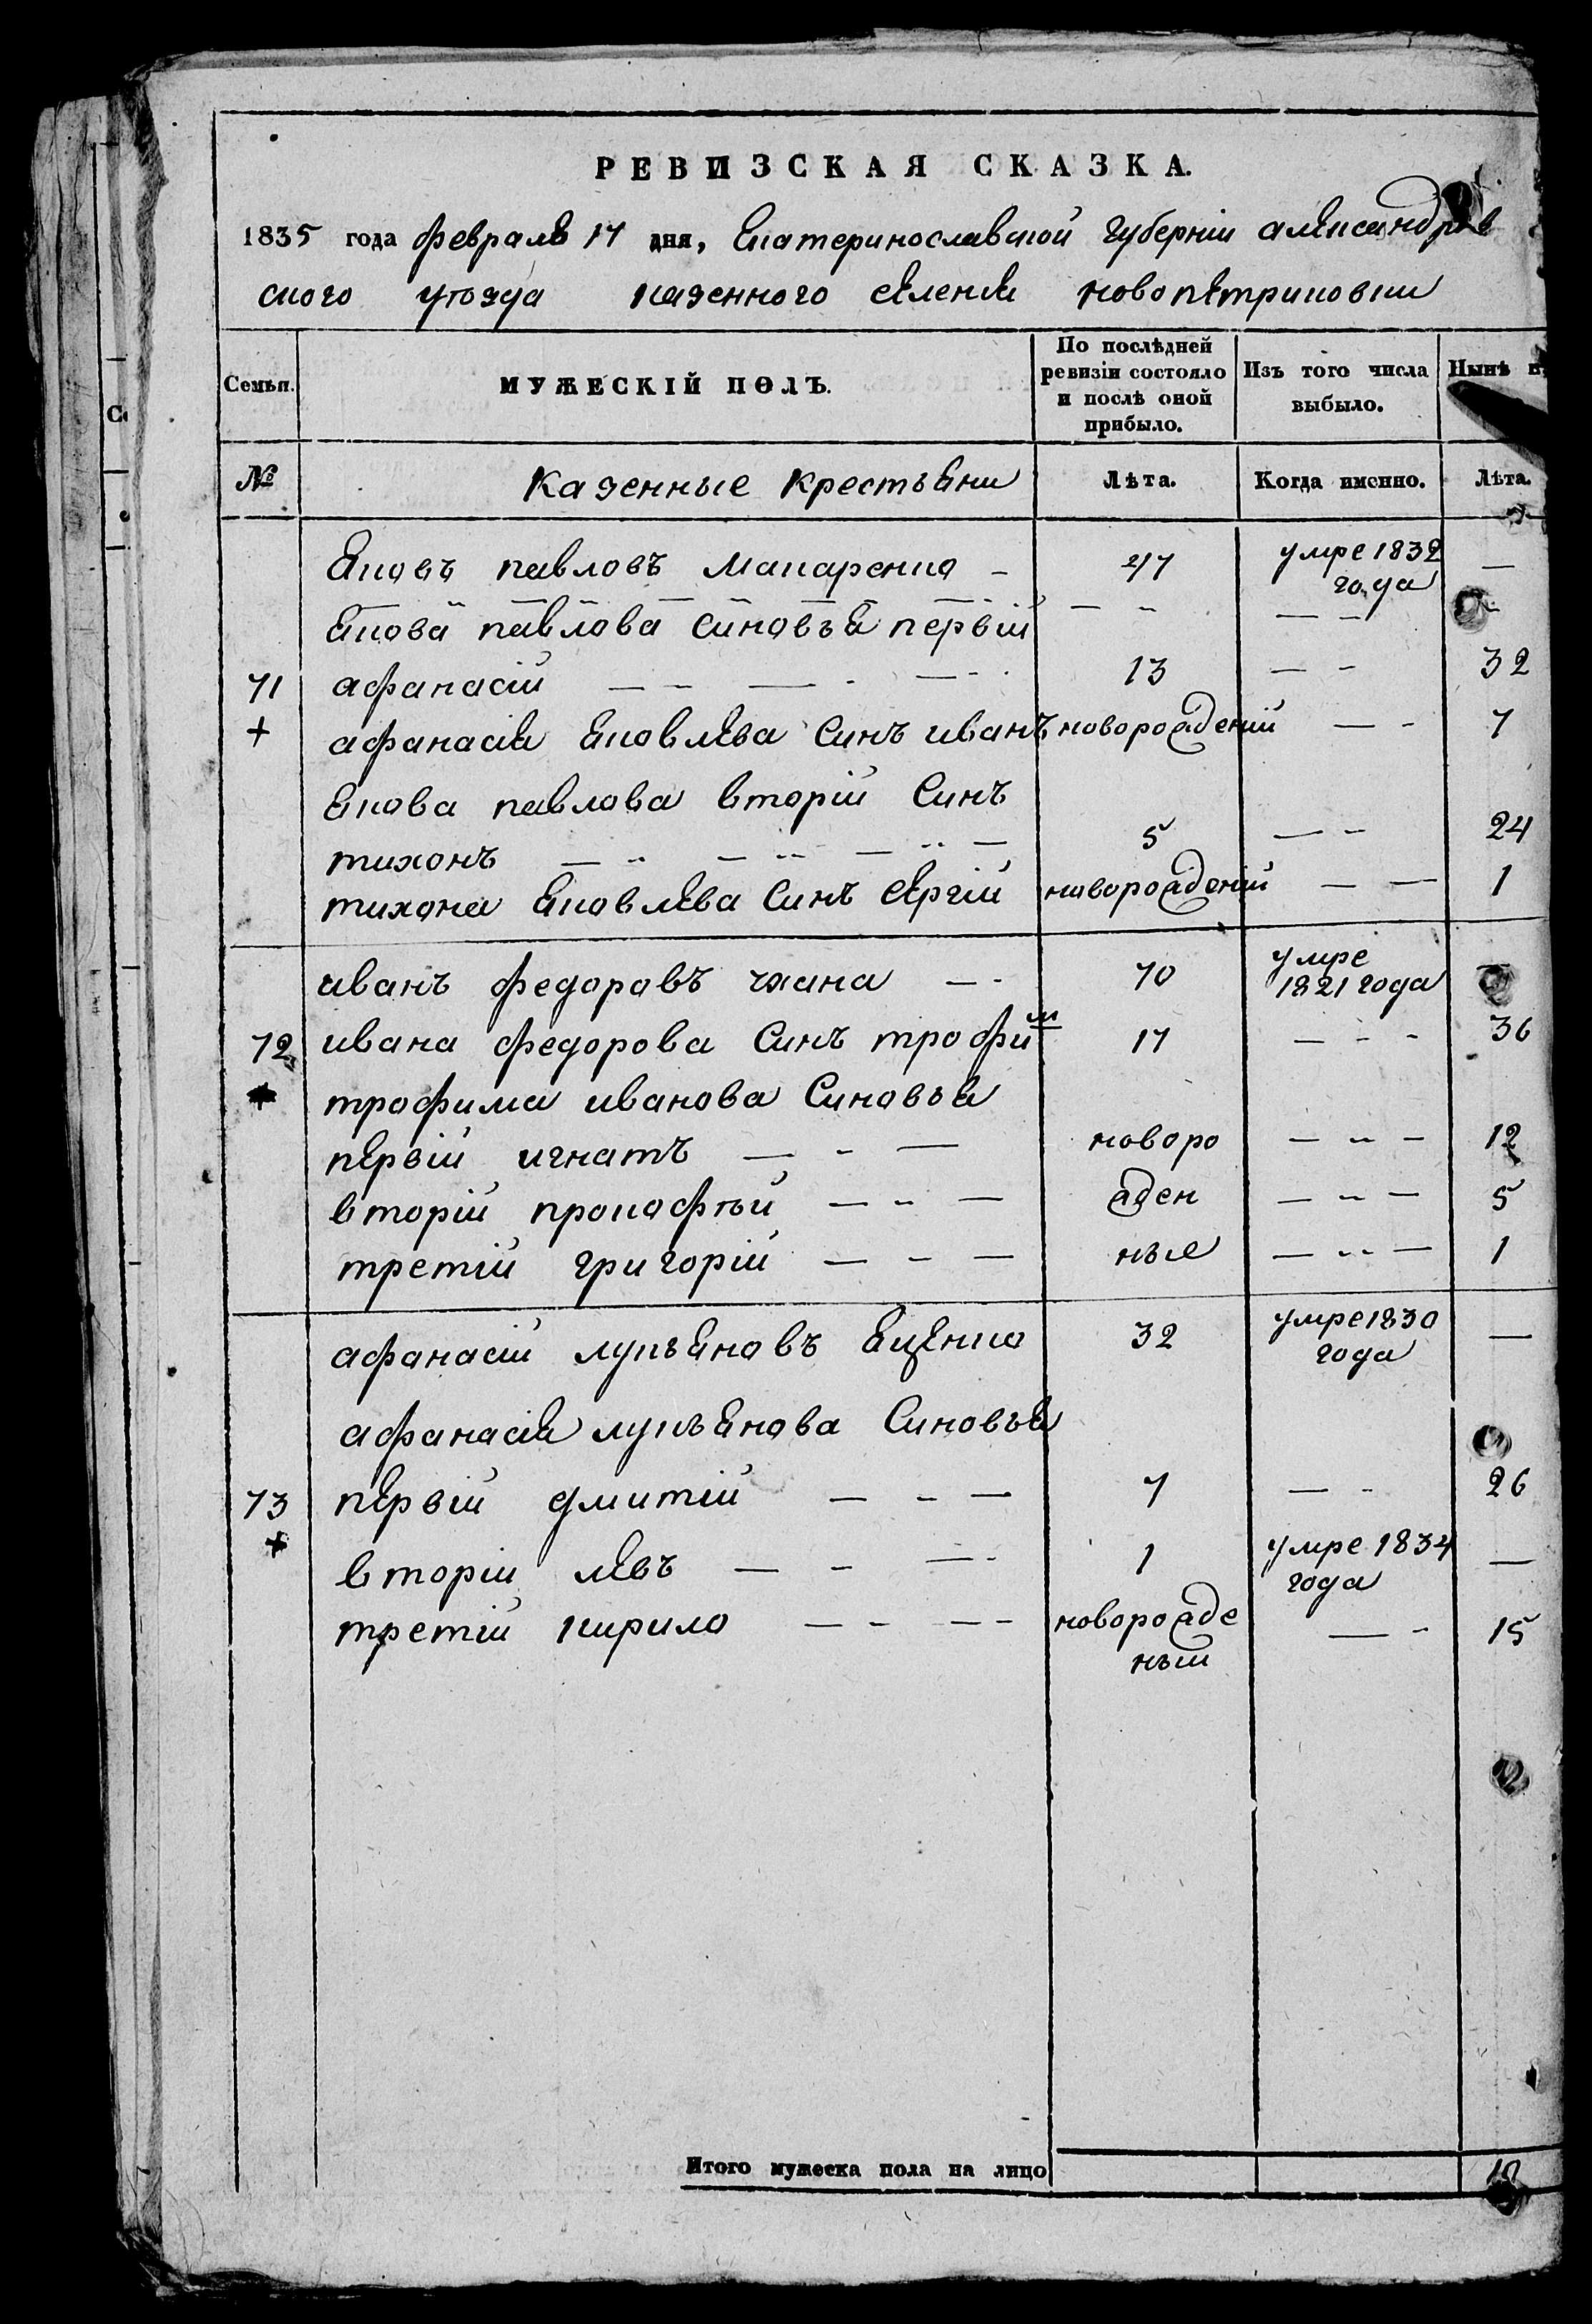 РЕВИЗСКАЯ СКАЗКА.
1835 года февраля 17 дня, Екатеринославской губерніи александров
ского уѣзда казенного селения новопетриковки
Семьи. МУЖЕСКІЙ ПОЛЪ. По послѣдней ревизіи состояло и послѣ оной прибыло. Изъ того числа выбыло. Нынѣ
№ Казенные крестьяни Лѣта. Когда именно. Лѣта.
Яковъ павловъ макаренко 47 умре 1832 года —
Якова павлова синовья первій
71 афанасій 13 — 32
афанасія Яковлева синъ иванъ новорожденій — 7
Якова павлова вторій синъ
тихонъ 5 — 24
тихона Яковлева синъ сергій новорожденій — 1
иванъ федоровъ 70 умре 1821 года
72 ивана федорова синъ трофим 17 — 36
трофима иванова синовья
первій игнатъ новоро — 12
вторій прокофѣй жден — 5
третій григорій ные — 1
афанасій лукъяновъ Яценко 32 умре 1830 года —
афанасія лукъянова синовья
73 первій дмитій 7 — 26
вторій левъ 1 умре 1834 года —
третій кирило новорожде ный — 15
Итого мужеска пола на лицо